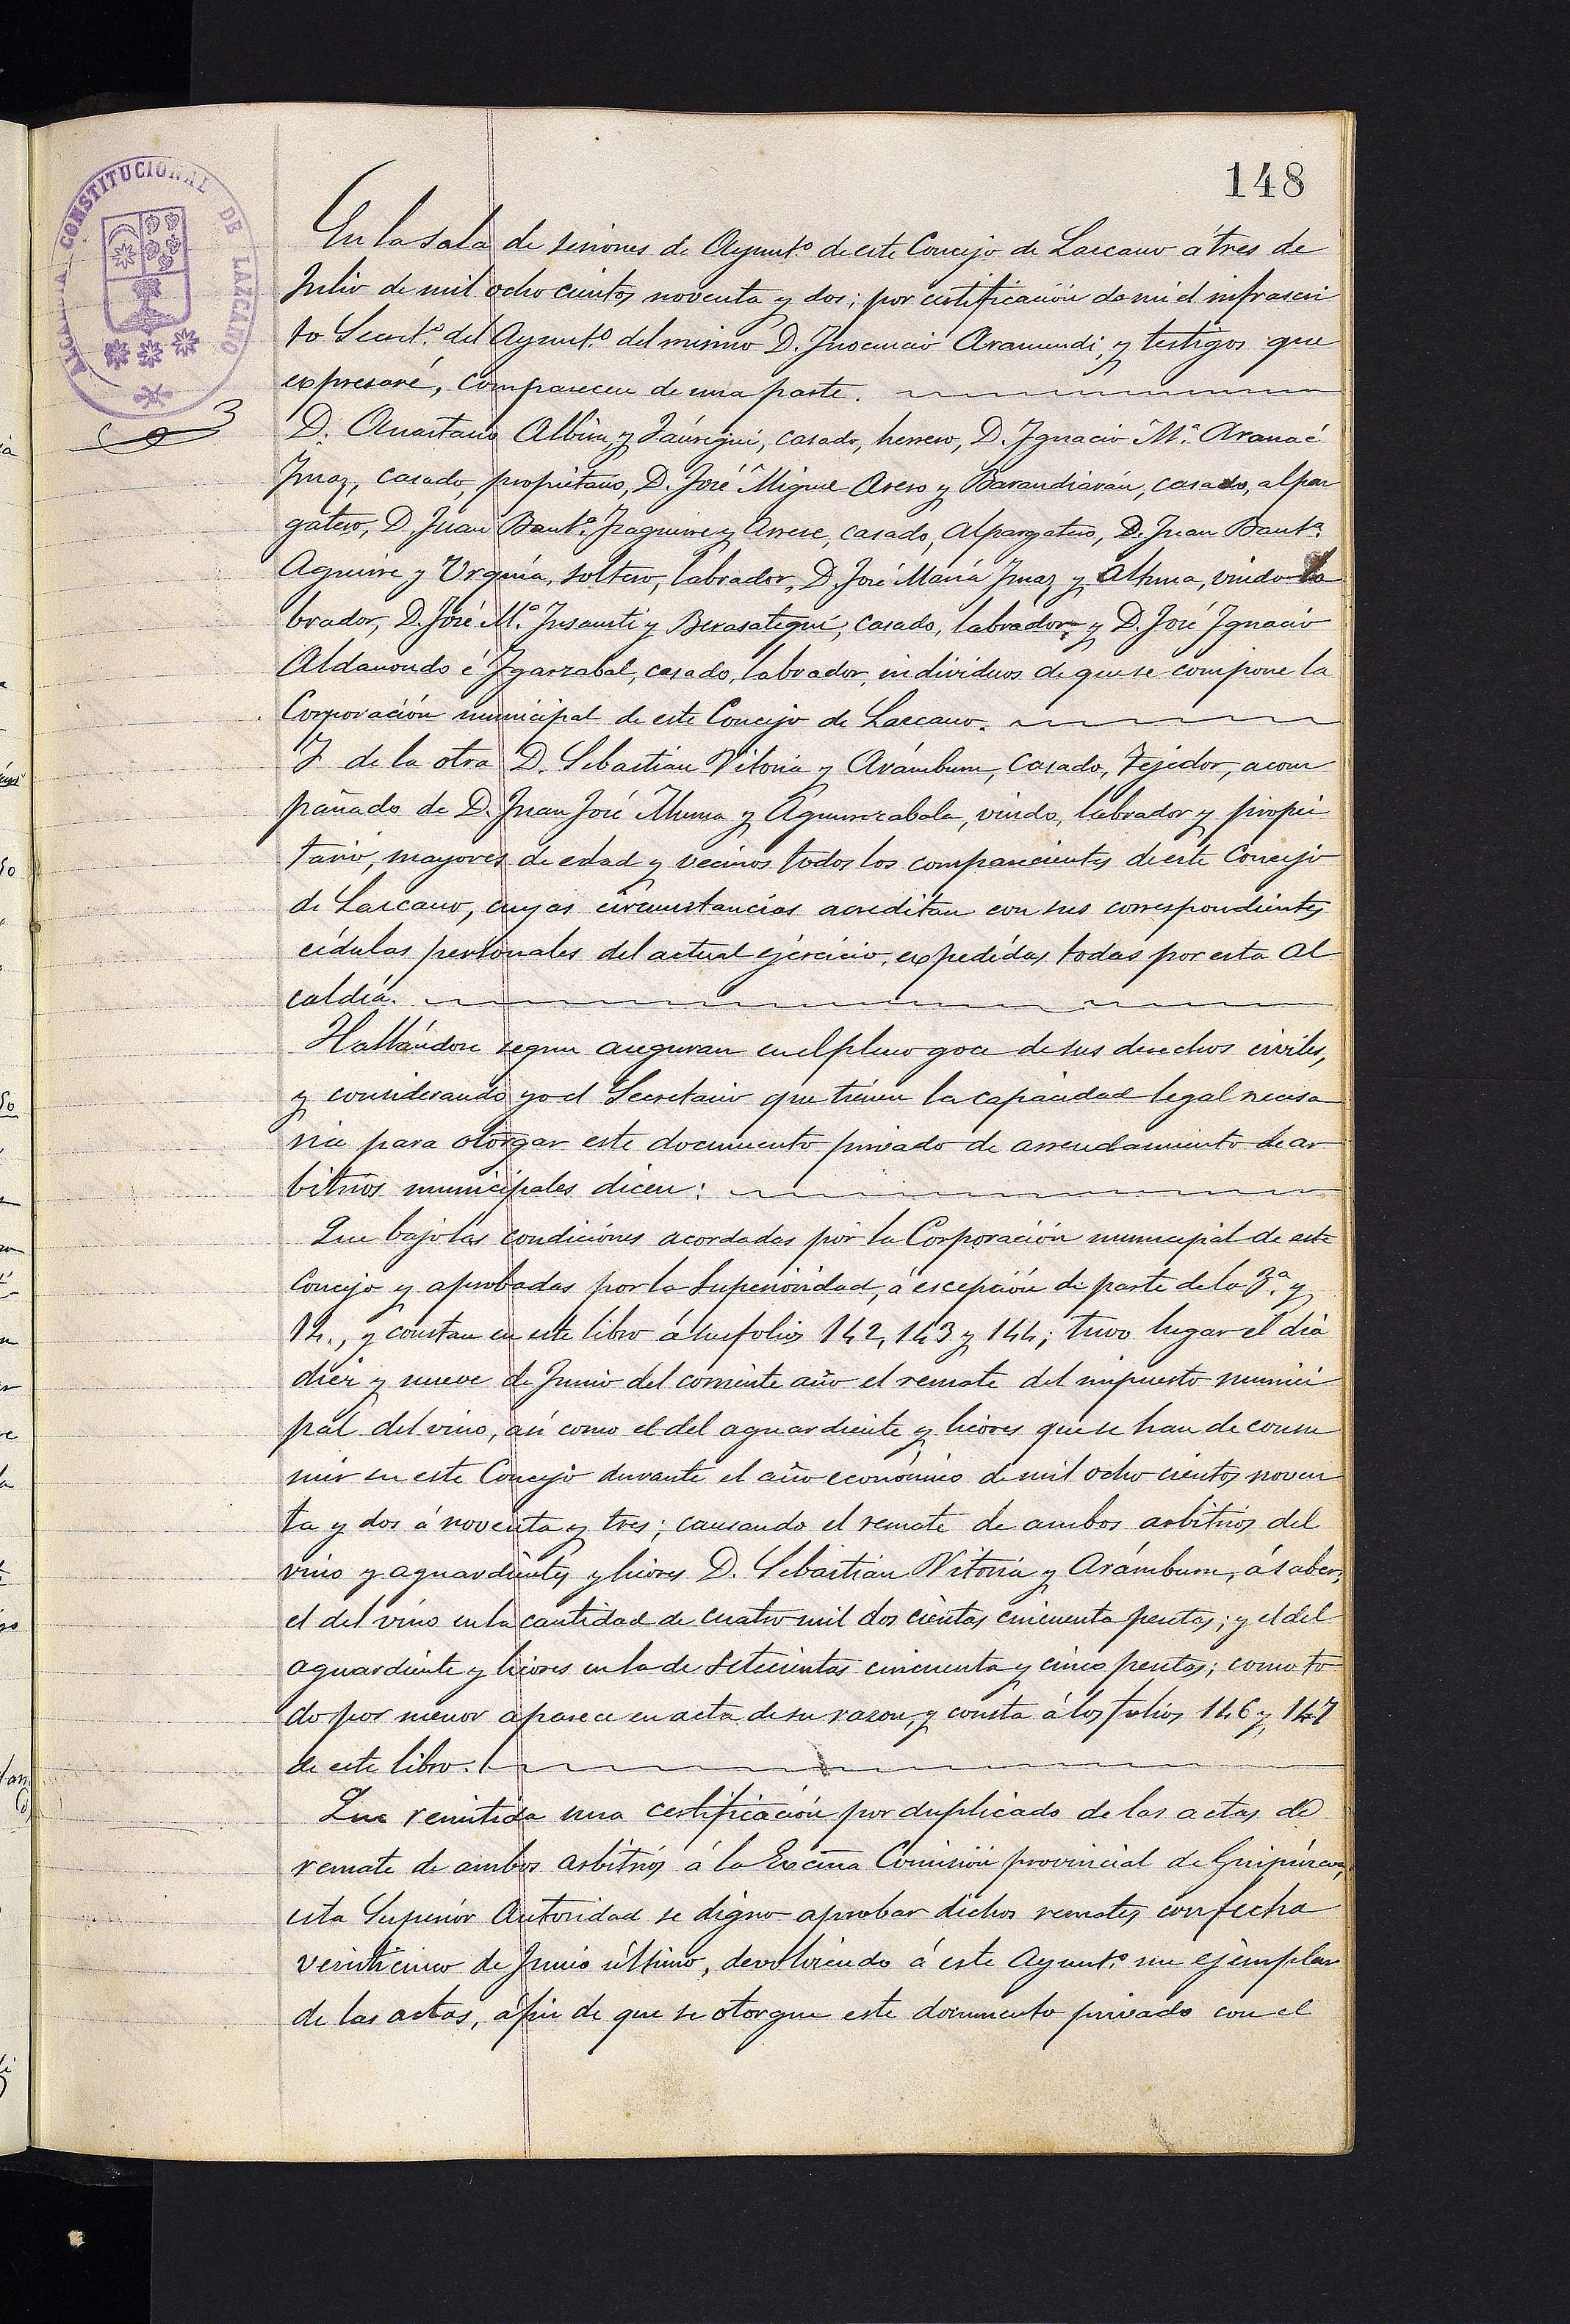 148
ALCALDIA CONSTITUCIONAL DE LAZCANO
En la sala de sesiones de Ayunt.º de este Concejo de Lazcano á tres de
Julio de mil ocho cientos noventa y dos; por certificación de mi el infrascri
to Secret.º del Ayunt.º del mismo D. Inocencio Aramendi, y testigos que
expresaré, comparecen de una parte.
D. Anastasio Albisu y Jáuregui, casado, herrero, D. Ignacio M.ª Arana é
Imaz, casado, propietario, D. José Miguel Asero y Barandiarán, casado, alpar
gatero, D. Juan Baut.ª Izaguirre y Arrese, casado, alpargatero, D. Juan Baut.ª
Aguirre y Urquía, soltero, labrador, D. José María Imaz y Altuna, viudo la
brador, D. José M.ª Insausti y Berasategui, casado, labrador, y D. José Ignacio
Aldanondo é Igarzabal, casado, labrador, individuos de que se compone la
Corporación municipal de este Concejo de Lazcano.
Y de la otra D. Sebastián Vitoria y Arámburu, casado, tejedor, acom
pañado de D. Juan José y Aguirrezabala, viudo, labrador y propie
tario, mayores de edad y vecinos todos los comparecientes de este Concejo
de Lazcano, cuyas circunstancias acreditan con sus correspondientes
cédulas personales del actual ejercicio, expedidas todas por esta Al
caldía.
Hallándose segun aseguran en el pleno goce de sus derechos civiles,
y considerando yo el Secretario que tienen la capacidad legal necesa
ria para otorgar este documento privado de arrendamiento de ar
bitrios municipales dicen:
Que bajo las condiciones acordadas por la Corporación municipal de este
Concejo y aprobadas por la Superioridad, á escepción de parte de la 3.ª y
14., y constan en este libro á sus folios 142, 143 y 144; tuvo lugar el día
diez y nueve de Junio del corriente año el remate del impuesto munici
pal del vino, así como el del aguardiente y licores que se han de consu
mir en este Concejo durante el año económico de mil ocho cientos noven
ta y dos á noventa y tres; causando el remate de ambos arbitrios del
vino y aguardientes y licores D. Sebastián Vitoria y Arámburu, á saber;
el del vino en la cantidad de cuatro mil dos cientas cincuenta pesetas; y el del
aguardiente y licores en la de setecientas cincuenta y cinco pesetas; como to
do por menor aparece en acta de su razon, y consta á los folios 146 y 147
de este libro.
Que remitida una certificación por duplicado de las actas de
remate de ambos arbitrios á la Excma Comisión provincial de Guipúzcoa,
esta Superior Autoridad se digno aprobar dichos remates con fecha
veinticinco de Junio último, devolviendo á este Ayunt.º un ejemplar
de las actas, á fin de que se otorgue este documento privado con el